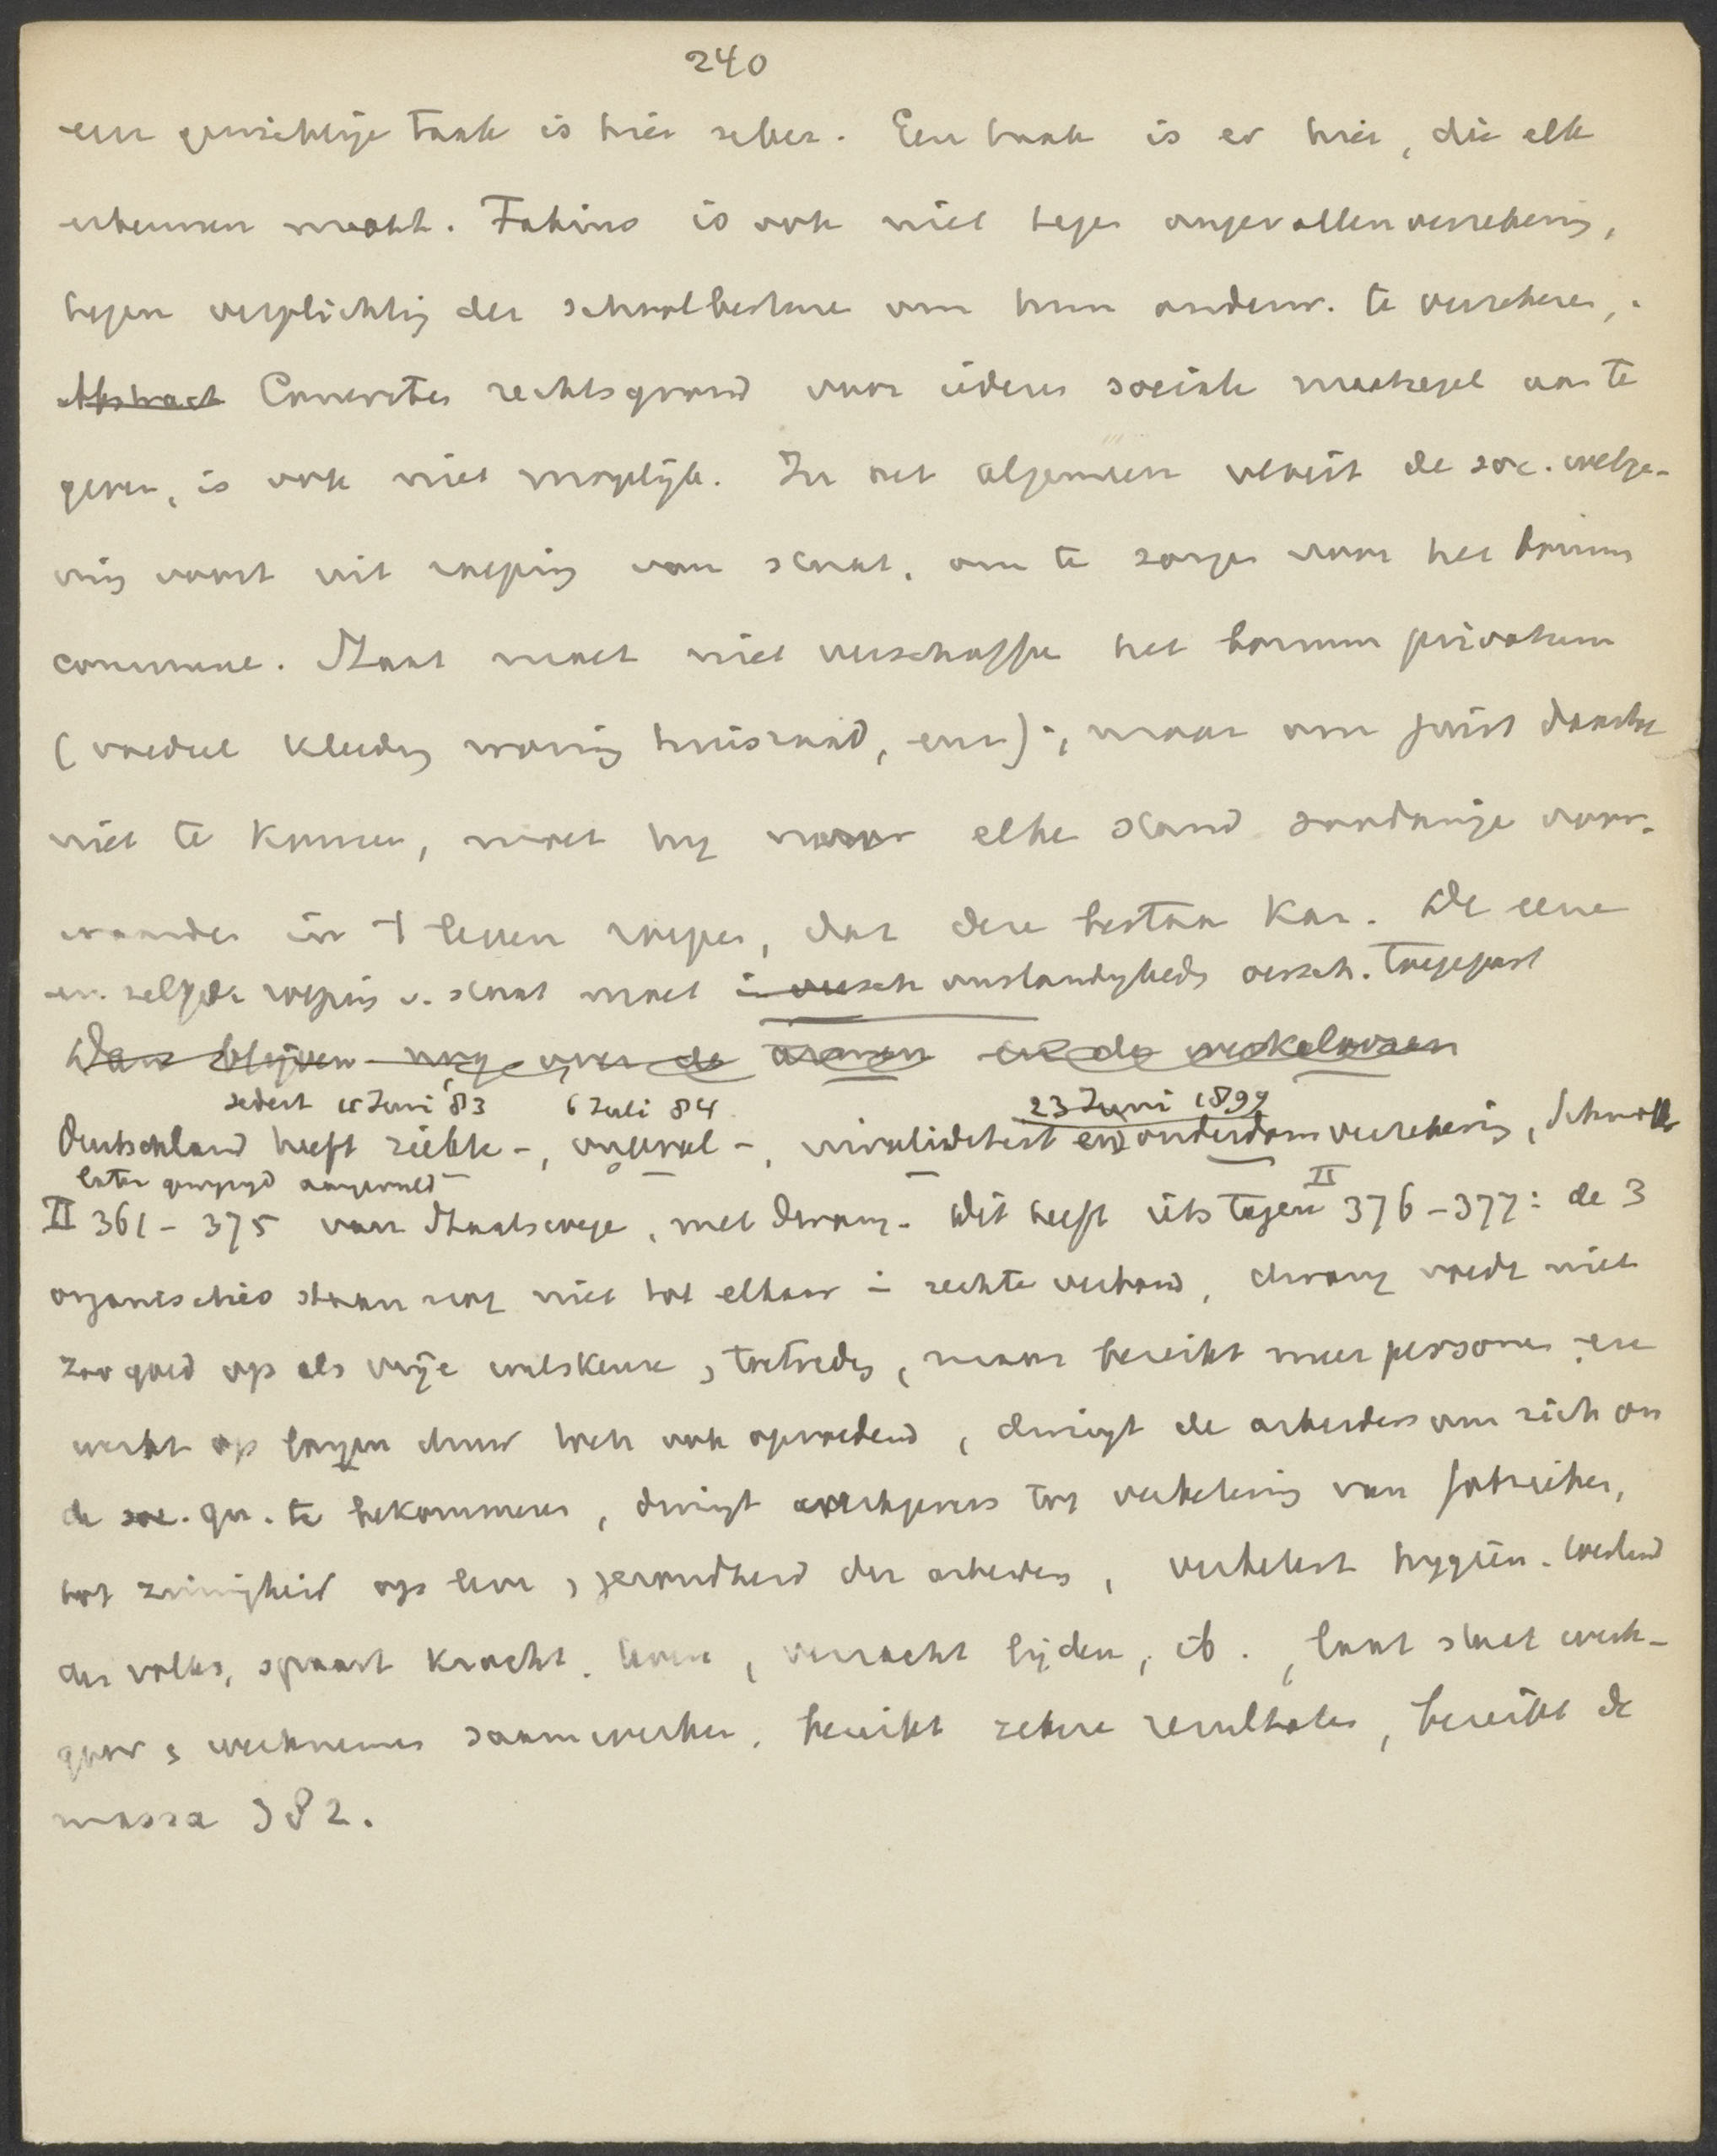 240
een gewichtige taak is hier zeker. Een taak is er hier, die elk
erkennen moet. Fabius is ook niet tegen ongevallenverzekering,
tegen verplichting der schoolbesture om hun onderw. te verzekeren,.
Abstract Concreten rechtsgrond voor iedere sociale maatregel aan te
geven, is ook niet mogelijk. In het algemeen vloeit de soc. wetge-
ving voort uit roeping van staat, om te zorgen voor het bonum
commune. Staat moet niet verschaffen het bonum privatum
(voedsel kleding woning huisraad, enz); maar om juist daarbij
niet te komen, moet hij voor elke stand zoodanige voor-
waarden in 't leven roepen, dat deze bestaan kan. De eene
en zelfde roeping v. staat moet in versch omstandigheden versch. toegepast
Dan blijven nog over de armen en de werkeloozen
sedert 15 Juni '83 6 Juli 84 23 Juni 1899
Deutschland heeft ziekte -, ongeval -, invaliditeit en ouderdomsverzekering, Schmoller
later gewijzigd aangevuld
II 361 - 375 van Staatswege, met dwang. Dit heeft iets tegen II 376 - 377: de 3
organisaties staan nog niet tot elkaar in rechte verband, dwang voedt niet
zoo goed op als vrije wilskeuze, toetreding, maar bereikt meer personen en
werkt op langen duur toch ook opvoedend, dwingt de arbeiders om zich om
de soc. qu. te bekommeren, dwingt werkgevers tot verbetering van fabrieken,
tot zuinigheid op leven, gezondheid der arbeiders, verbetert hygiën. toestand
des volks, spaart kracht, leven, verzacht lijden, ib., laat staat werk-
gever, werknemer saamwerken, bereikt zekere resultaten, bereikt de
massa 382.